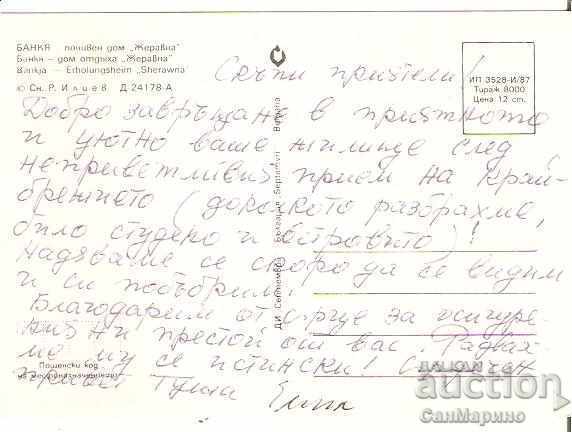 БАНКЯ почивен дом „Жеравна"
Банкя — дом отдыха „Жеравна"
Bankja — Erholungsheim „Sherawna"
© Сн. Р. Илиев Д 24178-А
ИП 3528-И/87
Тираж 8000
Цена 12 ст.
ДИ Септември България Septemvri Bulgaria
Скъпи приятели!
Добро завръщане в приятното
и уютно ваше жилище след
неприветливия прием на край-
брежието (доколкото разбрахме,
било студено и ветровито)!
Надяваме се скоро да се видим
и си побъбрим.
Благодарим от сърце за осигуре-
ния ни престой от вас. Радвах-
ме му се истински! Сърдечен
привет
Пощенски код
на местоназначението
delcampe
СанМарино